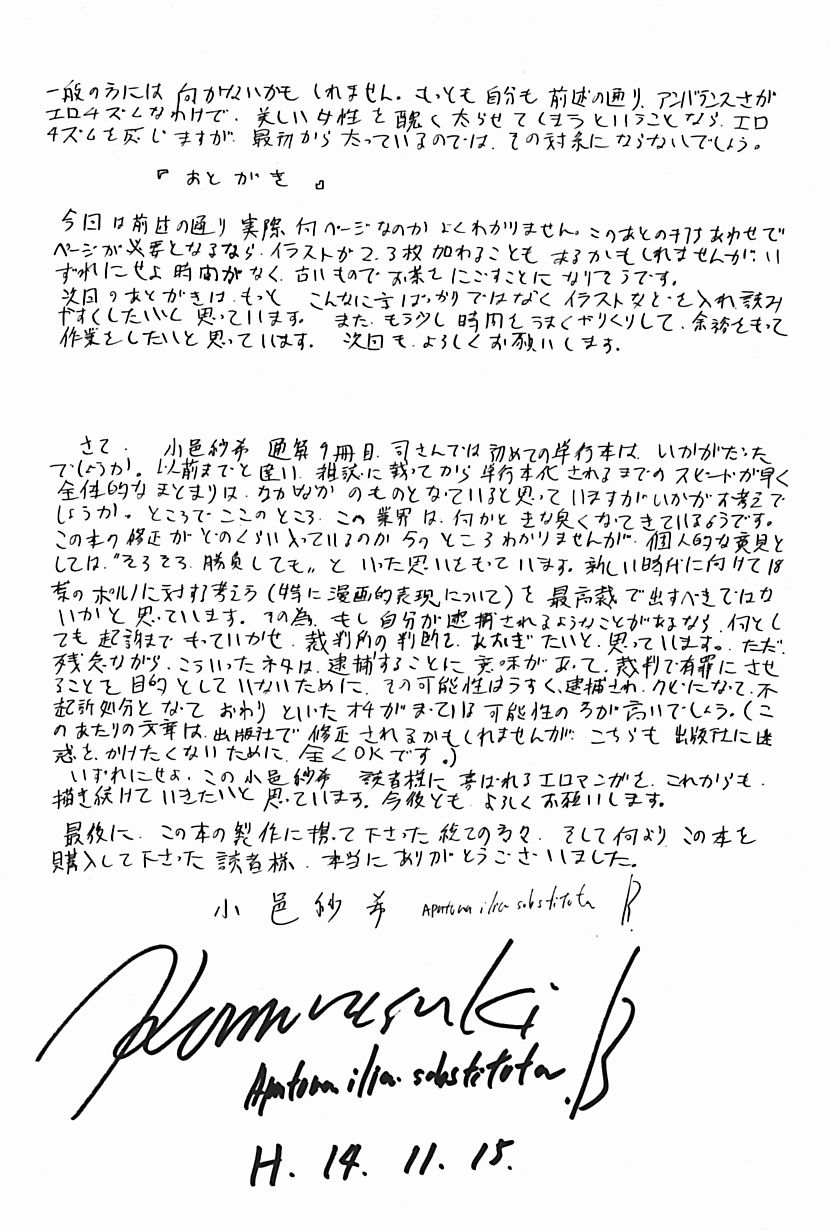 一般の方には何がないかもしれません。もっとも自分も前述の通り、アンバランスさが
エロチズムなわけで、美しい女性を醜く太らせてしまうということなら、エロ
チズムを感じますが、最初から太っているのでは、その対象にならないでしょう。
『おとがき』
今回は前述の通り実際何ページなのかよくわかりません。このあとの打ちあわせで
ページが必要となるなら、イラストが2、3枚加わることもあるかもしれませんが、い
ずれにせよ時間がなく、古いものでお茶をにごすことになりそうです。
次回のあとがきは、もっとこんなに字ばっかりではなくイラストなどを入れ、読み
やすくしたいと思っています。また、もう少し時間をうまくやりくりして、余裕をもって
作業をしたいと思っています。次回も、よろしくお願いします。
さて、小邑紗希通算9冊目、司さんでは初めての単行本は、いかがだった
でしょうか。以前までと違い、雑誌に載ってから単行本化されるまでのスピードが早く
全体的なまとまりは、なかなかのものとなっていると思っていますがいかがお考えで
しょうか。ところでここのところ、この業界は、何かときな臭くなってきているようです。
この本の修正がどのくらい入っているのか今のところわかりませんが、個人的な意見と
しては、“そろそろ、勝負しても”といった思いをもっています。新しい時代に向けて18
禁のポルノに対する考え方(特に漫画的表現について)を最高裁で出すべきではな
いかと思っています。その為、もし自分が逮捕されるようなことがあるなら、何とし
ても起訴までもっていかせ、裁判所の判断を、あおぎたいと、思っています。ただ
残念ながら、こういったネタは、逮捕することに意味があって、裁判で有罪にさせ
ることを目的としていないために、その可能性はうすく、逮捕され、クビになって、不
起訴処分となっておわりといったオチがまっている可能性の方が高いでしょう。(こ
のあたりの文章は、出版社で修正されるかもしれませんが、こちらも出版社に迷
惑をかけたくないために、全くOKです。)
いずれにせよ、この小邑紗希、読者様に喜ばれるエロマンガを、これからも、
描き続けていきたいと思っています。今後とも、よろしくお願いします。
最後に、この本の製作に携って下さった総ての方々、そして何より、この本を
購入して下さった読者様、本当にありがとうございました。
小邑紗希 Apatura ilia substituta B
Komurasaki B
Apatura ilia substituta
H. 14. 11. 15.